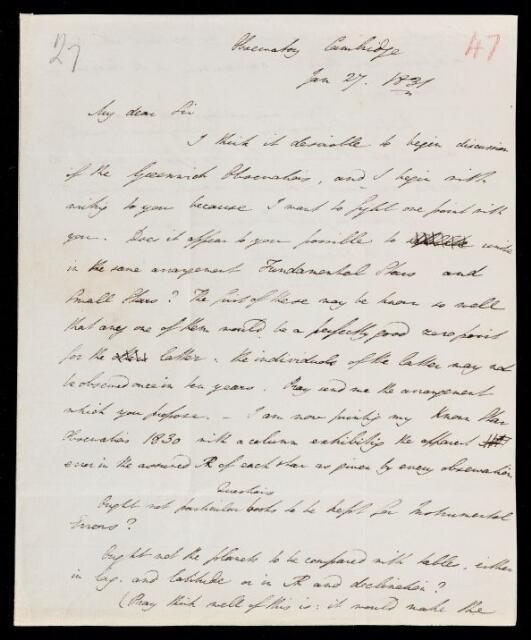 27
47
Observatory Cambridge
Jan 27. 1831
My dear Sir
I think it desirable to begin discussion
of the Greenwich Observations, and I begin with
writing to you because I want to fight one point with
you. Does it appear to you possible to unite
in the same arrangement Fundamental Stars and
Small Stars? The first of these may be known so well
that any one of them would be a perfectly good zero point
for the latter: the individuals of the latter may not
be observed once in ten years. Pray send me the arrangement
which you propose. – I am now printing my Known Star
Observations 1830 with a column exhibiting the apparent
error in the assumed AR of each star as given by every observation
Questions
Ought not particular books to be kept for Instrumental
Errors?
Ought not the planets to be compared with tables, either
in Lng. and latitude or in AR and declination?
(Pray think well of this is: it would make the